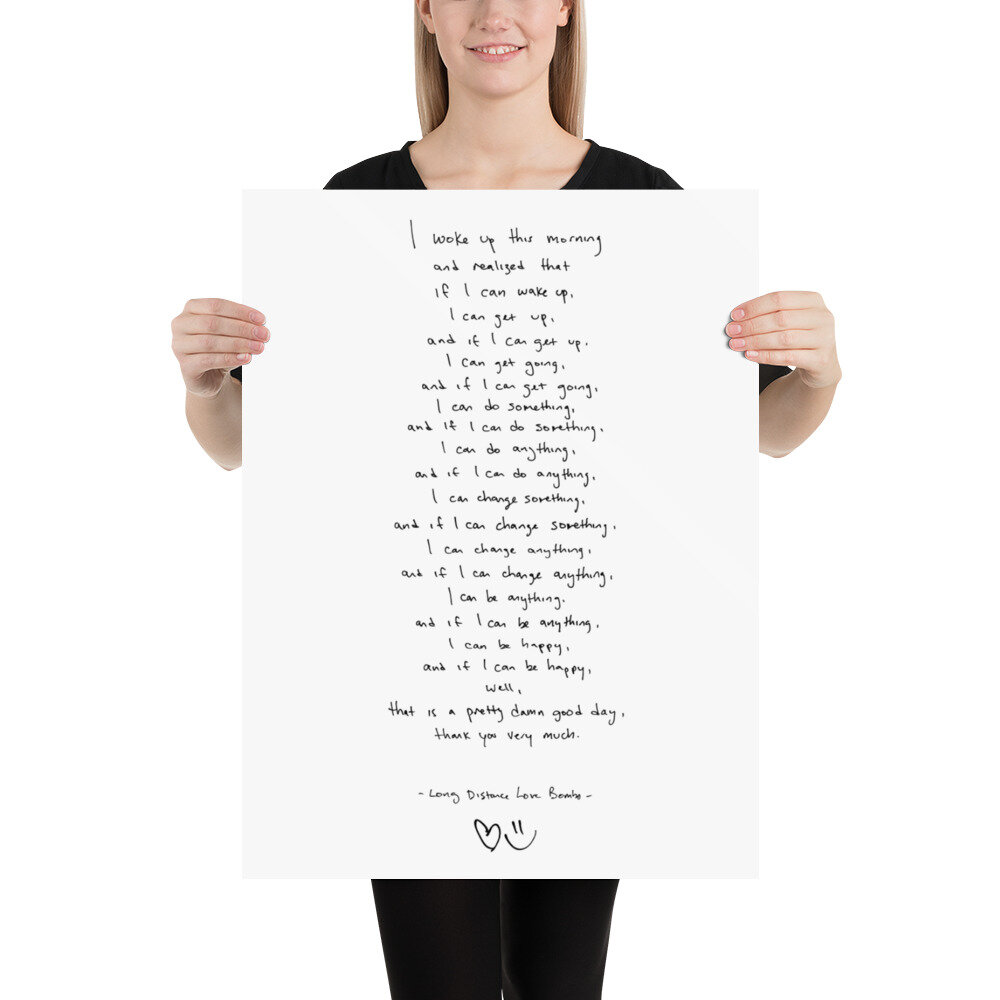 I woke up this morning
and realized that
if I can wake up,
I can get up,
and if I can get up,
I can get going,
and if I can get going,
I can do something,
and if I can do something,
I can do anything,
and if I can do anything,
I can change something,
and if I can change something,
I can change anything,
and if I can change anything,
I can be anything.
and if I can be anything,
I can be happy,
and if I can be happy,
well,
that is a pretty damn good day,
thank you very much.
- Long Distance Love Bombs -